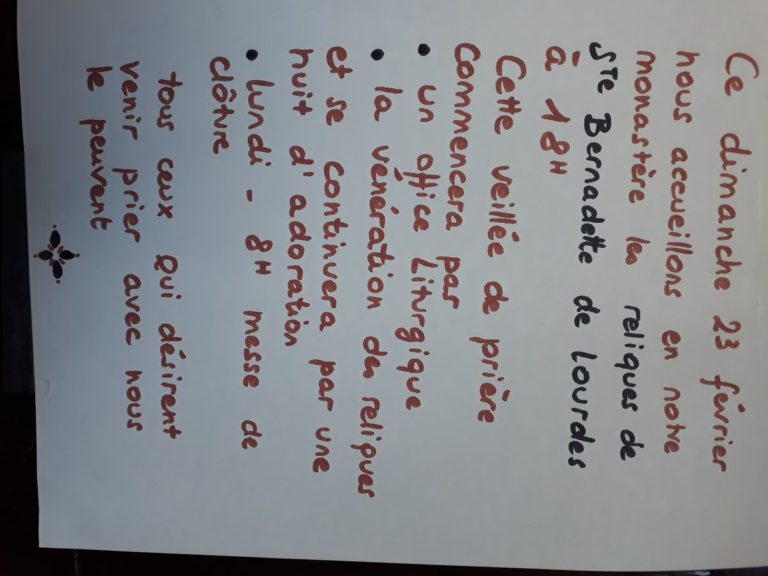 Ce dimanche 23 février
nous accueillons en notre
monastère les reliques de
Ste Bernadette de Lourdes
à 18H
Cette veillée de prière
Commencera par
• un office Liturgique
• la vénération des reliques
et se continuera par une
nuit d'adoration
• lundi - 8H messe de
clôture
tous ceux qui désirent
venir prier avec nous
le peuvent